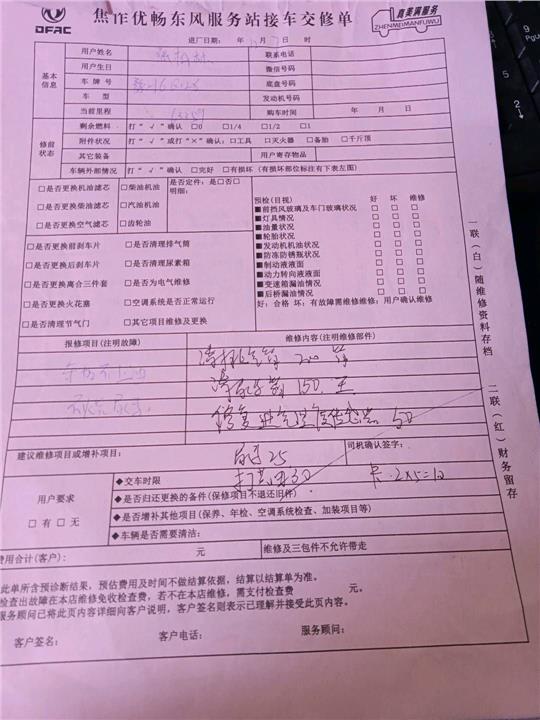 DFAC
焦作优畅东风服务站接车交修单
真美满服务
ZHENMEIMANFUWU
进厂日期: 年 月 日 时
基本信息
用户姓名 联系电话
用户生日 微信号码
车牌号 底盘号码
车型 发动机号码
当前里程 购车时间 年 月 日
修前状态
剩余燃料 打“√”确认 □0 □1/4 □1/2 □1
附件状况 打“√”或打“×”确认:□工具 □灭火器 □备胎 □千斤顶
其它装备 用户寄存物品
车辆外部情况 打“√”确认 □完好 □有损坏(有损坏部位标注有下表左图)
□是否更换机油滤芯 □柴油机油 是否定件:是□否□
明细:
□是否更换柴油滤芯 □汽油机油
□是否更换空气滤芯 □齿轮油
□是否更换前刹车片 □是否清理排气筒
□是否更换后刹车片 □是否清理尿素箱
□是否更换离合三件套 □是否为电气维修
□是否更换火花塞 □空调系统是否正常运行
□是否清理节气门 □其它项目维修及更换
预检(目视) 好 坏 维修
■前挡风玻璃及车门玻璃状况 □ □ □
■灯具情况 □ □ □
■油量状况 □ □ □
■轮胎状况 □ □ □
■发动机机油状况 □ □ □
■防冻防锈瓶状况 □ □ □
■制动液液面 □ □ □
■动力转向液液面 □ □ □
■变速箱漏油情况 □ □ □
■后桥漏油情况 □ □ □
好:合格 坏:有故障需维修维修:用户确认维修
报修项目(注明故障) 维修内容(注明维修部件)
清排气管 200
150
修复进气温度传感器 50
建议维修项目或增补项目:
25
司机确认签字:
30
卡 2×5=10
用户要求
□有 □无
◆交车时限
◆是否归还更换的备件(保修项目不退还旧件)
◆是否增补其他项目(保养、年检、空调系统检查、加装项目等)
◆车辆是否需要清洁:
费用合计(客户): 元 维修及三包件不允许带走
此单所含预诊断结果,预估费用及时间不做结算依据,结算以结算单为准。
检查出故障在本店维修免收检查费,若不在本店维修,需支付检查费 元。
服务顾问已将此页内容详细向客户说明,客户签名则表示已理解并接受此页内容。
客户签名: 客户电话: 服务顾问:
一联(白)随维修资料存档
二联(红)财务留存